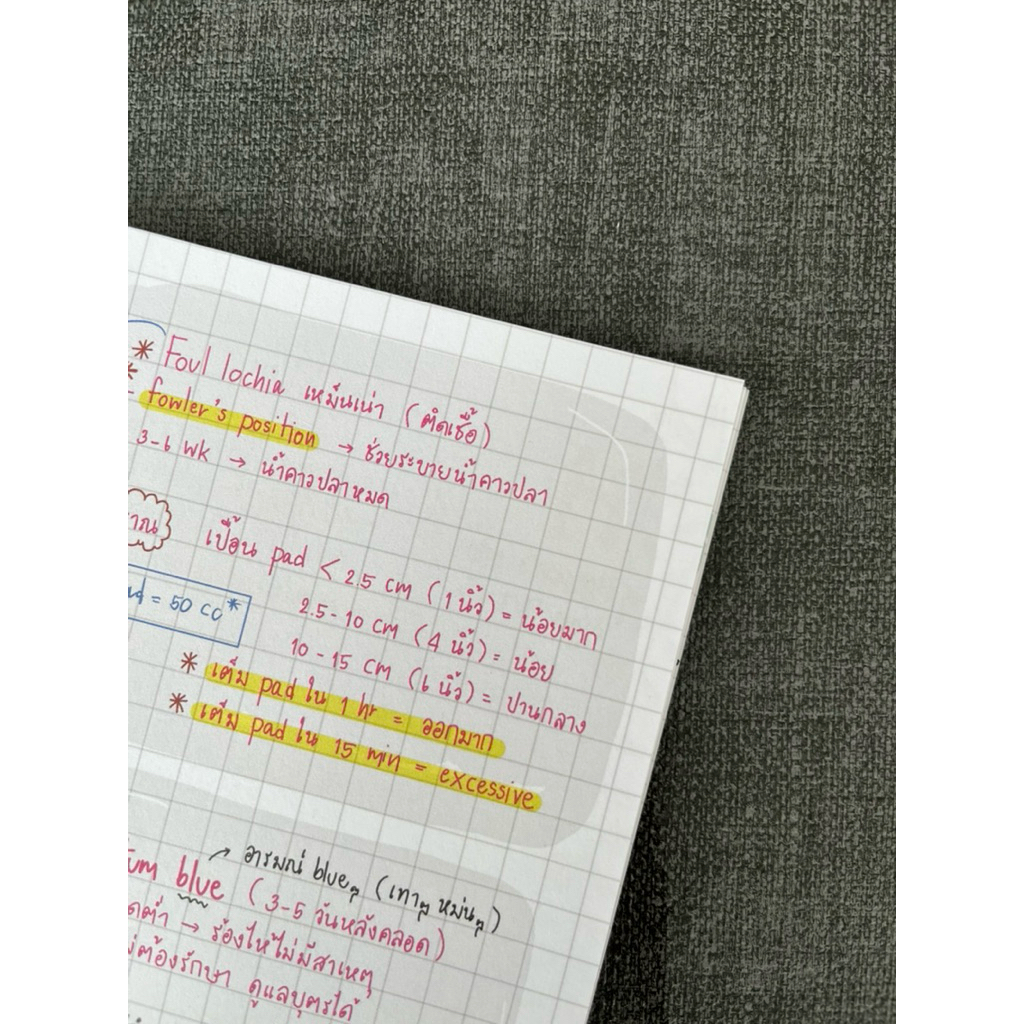 * Foul lochia เหม็นเน่า (ติดเชื้อ)
* fowler's position → ช่วยระบายน้ำคาวปลา
3-6 wk → น้ำคาวปลาหมด
เปื้อน pad < 2.5 cm (1 นิ้ว) = น้อยมาก
= 50 cc*
2.5 - 10 cm (4 นิ้ว) = น้อย
10 - 15 cm (6 นิ้ว) = ปานกลาง
* เต็ม pad ใน 1 hr = ออกมาก
* เต็ม pad ใน 15 min = excessive
→ อารมณ์ blueๆ (เทาๆ หม่นๆ)
um blue (3-5 วันหลังคลอด)
ต่ำ → ร้องไห้ไม่มีสาเหตุ
ต้องรักษา ดูแลบุตรได้